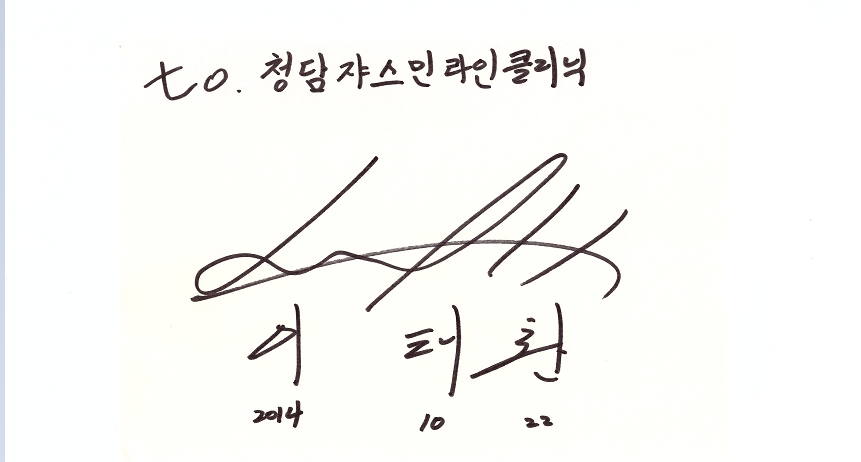 to. 청담쟈스민라인클리닉
이 태 환
2014 10 22